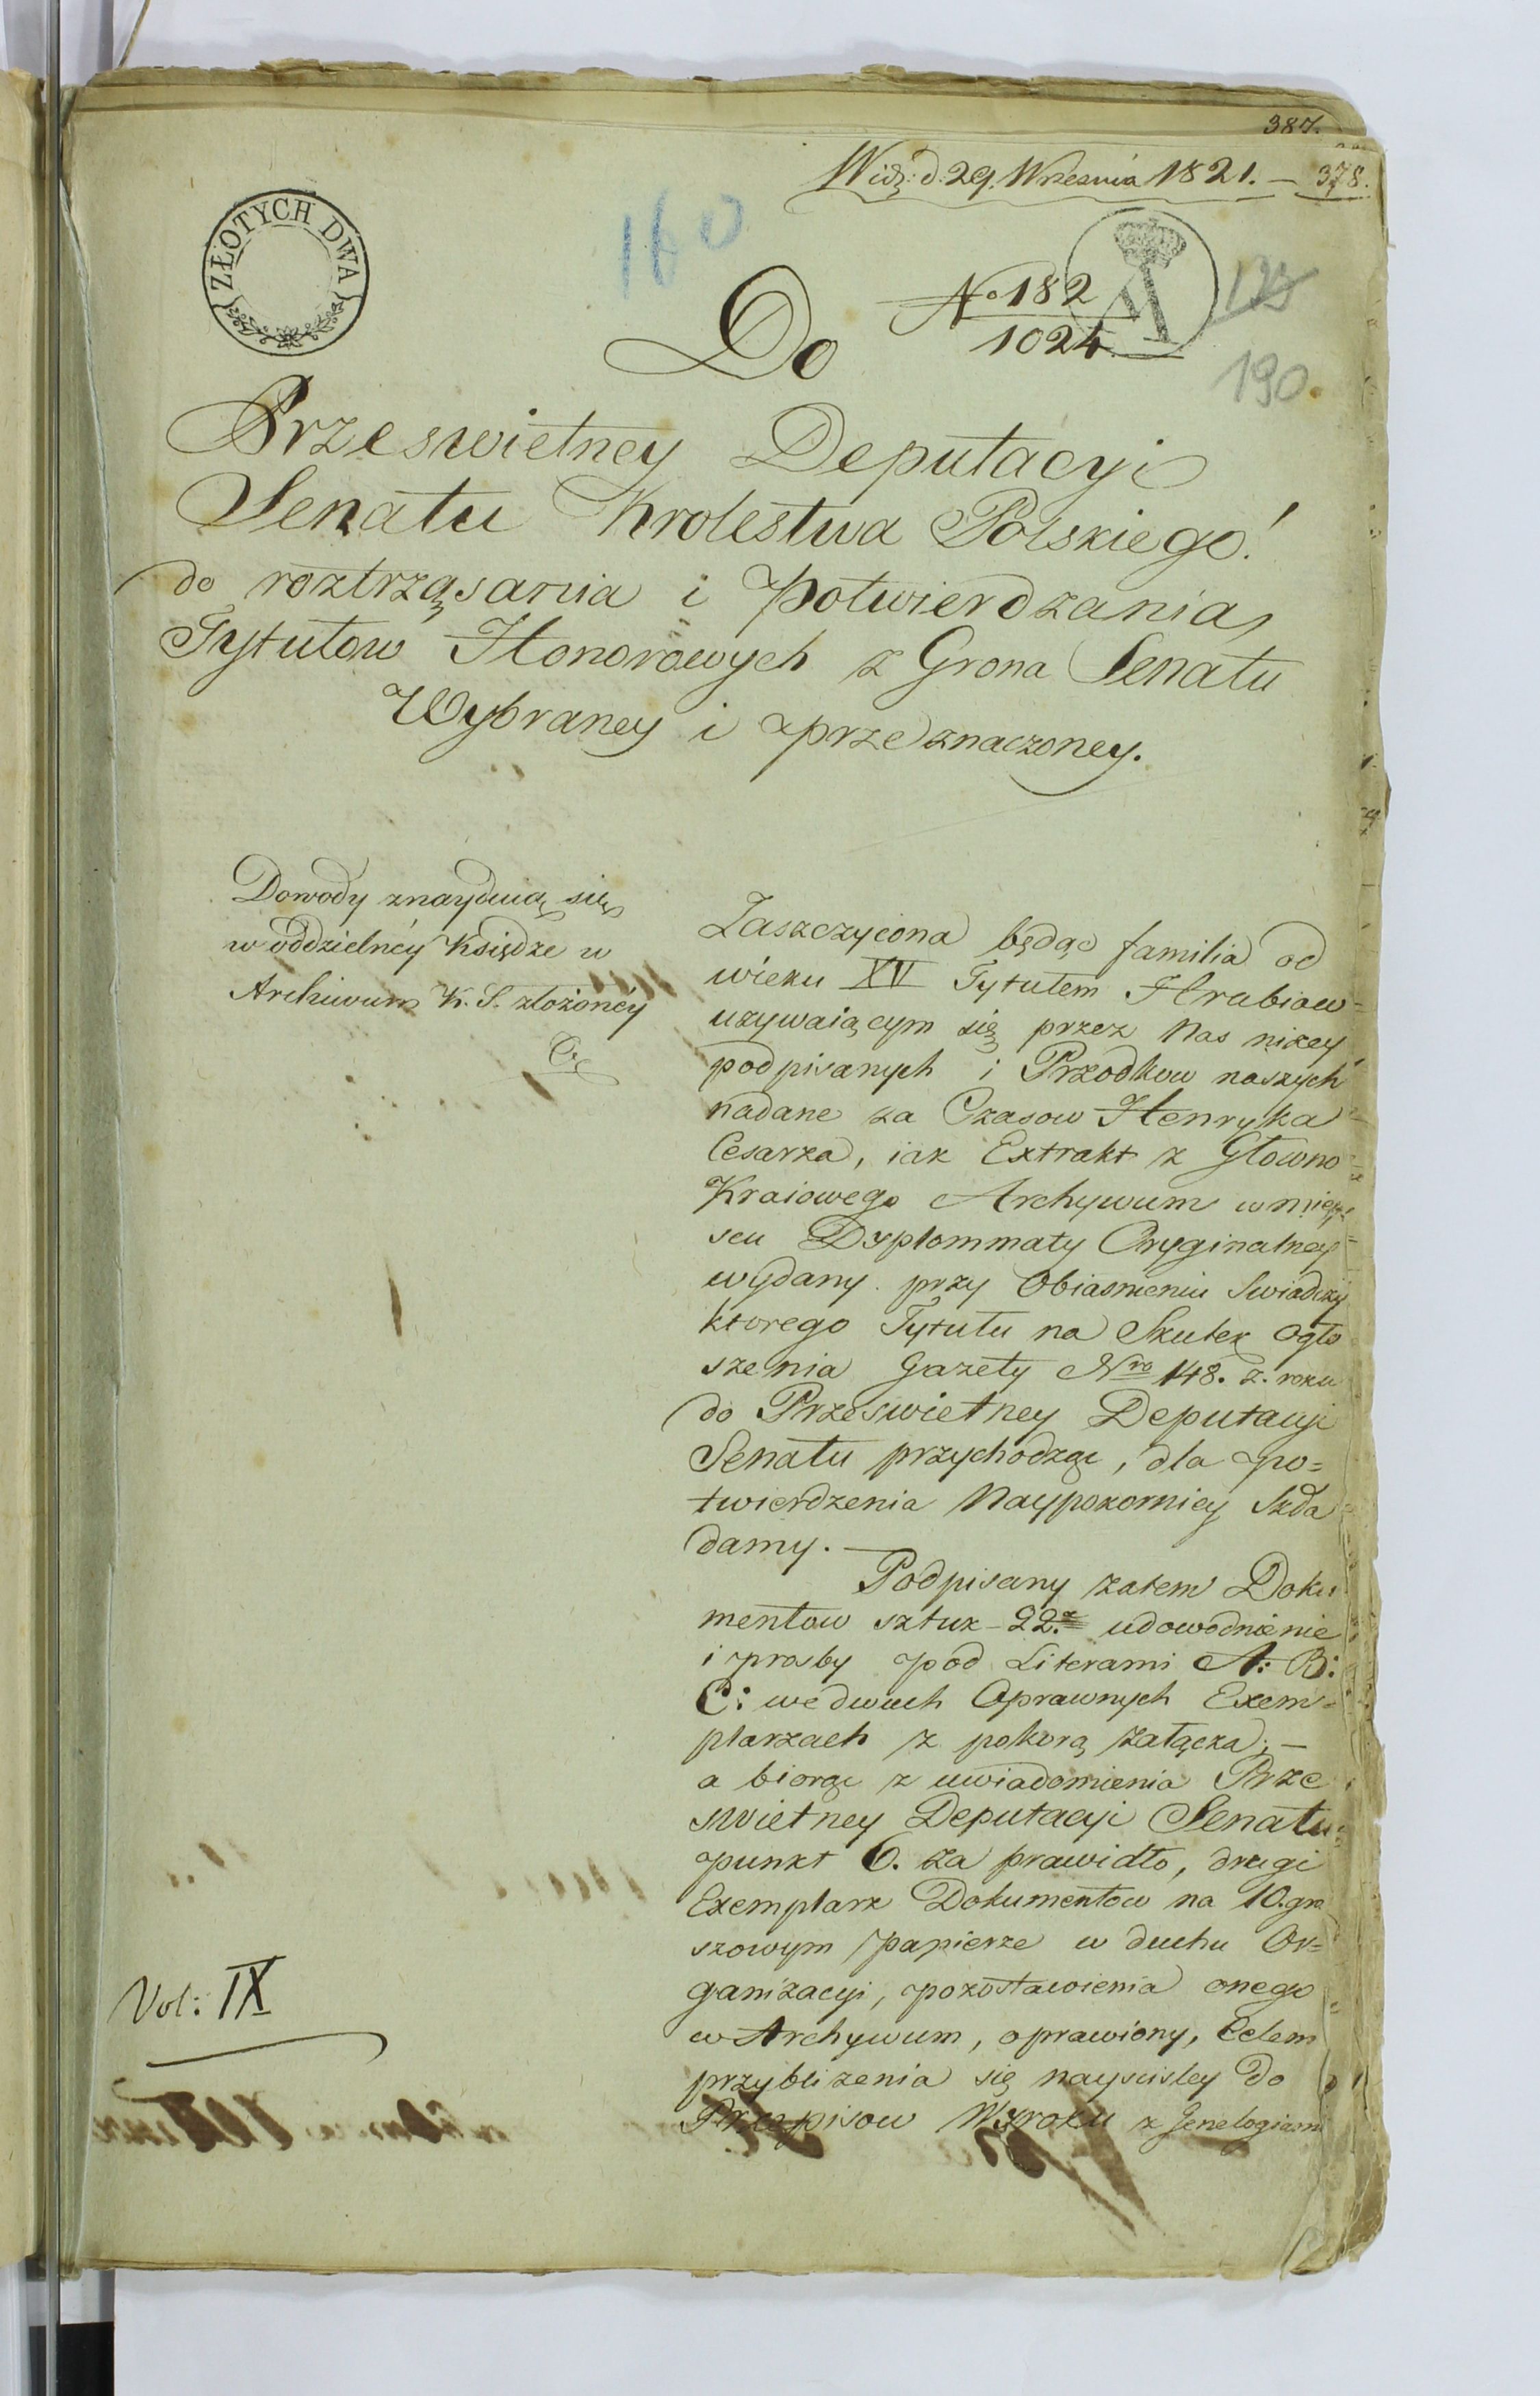 387.
Widz: d. 29. Wrzesnia 1821. — 378.
ZŁOTYCH DWA
160
No 182
1024
190
Do
Przeswietney Deputacyi
Senatu Krolestwa Polskiego!
do roztrząsania i Potwierdzania
Tytułow Honorowych z Grona Senatu
Wybraney i przeznaczoney.
Dowody znayduią się
w oddzielnéy Księdze w
Archiwum K. S. złożonéy
Zaszczycona będąc familia od
wieku XV Tytułem Hrabiow=
uzywaiącym się przez Nas nizey
podpisanych i Przodkow naszych
nadane za Czasow Henryka
Cesarza, iak Extrakt z Głowno
Kraiowego Archywum w miey
scu Dyplommaty Oryginalney
wydany przy Obiasnieniu Swiadczy
ktorego Tytułu na Skutek ogło
szenia Gazety Nro 148. z. roku
do Przeswietney Deputacyi
Senatu przychodząc, dla po=
twierdzenia Naypokorniey Skła
damy. —
Podpisany zatem Doku
mentow sztuk 22. udowodnienie
i prosby pod Literami A: B:
C: we dwuch Oprawnych Exem=
plarzach z pokorą załącza; —
a biorąc z uwiadomienia Prze
swietney Deputacyi Senatu
punkt 6. za prawidło, drugi
Exemplarz Dokumentow na 10. gro
szowym papierze w duchu Or=
ganizacyi, pozostawienia onego
w Archywum, oprawiony, Celem
przyblizenia się nayscisley do
Przepisow Wyroku z Genelogiami
Vol: IX